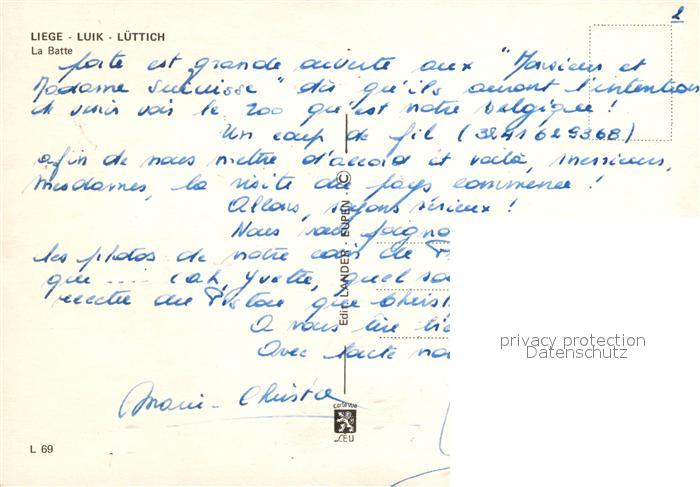 2
LIEGE - LUIK - LÜTTICH
La Batte
porte est grande ouverte aux "Monsieur et
Madame Suisse" dès qu'ils auront l'intention
de venir voir le zoo qu'est notre Belgique !
Un coup de fil (3241629368)
afin de nous mettre d'accord et voilà, messieurs,
mesdames, la visite du pays commence !
Allons, soyons sérieux !
Nous vous joigno
les photos de notre
que .... (ah, Yvette, quel
recette du que Christ
A nous lire
Avec toute
Marie-Christine
Edit. LANDER - EUPEN ©
cartevue
CEU
L 69
privacy protection
Datenschutz